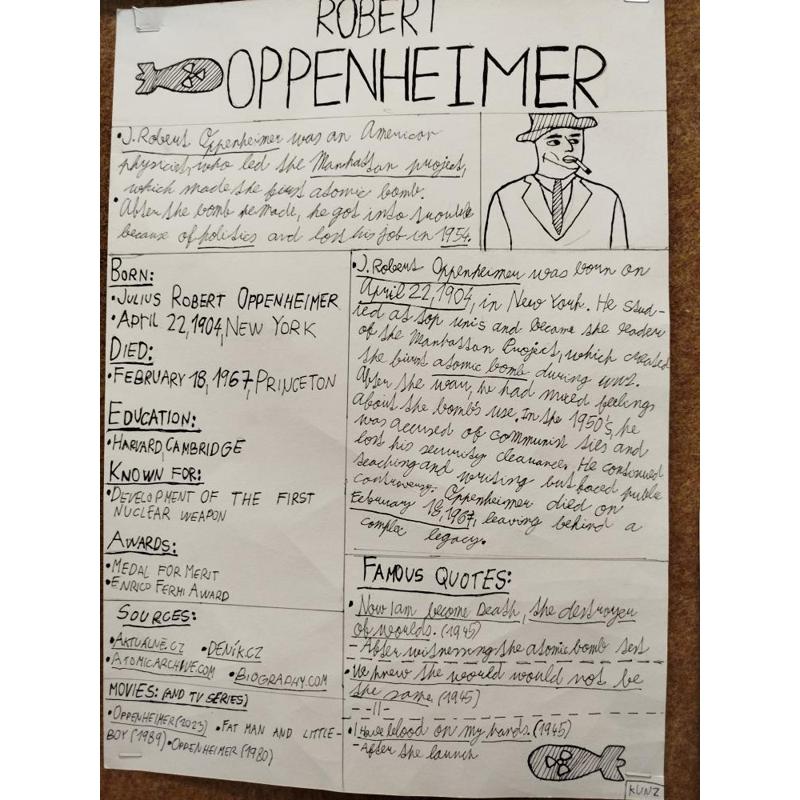 ROBERT
OPPENHEIMER
•J. Robert Oppenheimer was an American
physicist, who led the Manhattan project,
which made the first atomic bomb.
•After the bomb he made, he got into trouble
because of politics and lost his job in 1954.
BORN:
•JULIUS ROBERT OPPENHEIMER
•APRIL 22, 1904, NEW YORK
DIED:
•FEBRUARY 18, 1967, PRINCETON
EDUCATION:
•HARVARD, CAMBRIDGE
KNOWN FOR:
•DEVELOPMENT OF THE FIRST
NUCLEAR WEAPON
AWARDS:
•MEDAL FOR MERIT
•ENRICO FERMI AWARD
SOURCES:
•AKTUALNE.CZ •DENÍK.CZ
•ATOMICARCHIVE.COM •BIOGRAPHY.COM
MOVIES: (AND TV SERIES)
•OPPENHEIMER (2023) •FAT MAN AND LITTLE-
BOY (1989) •OPPENHEIMER (1980)
•J. Robert Oppenheimer was born on
April 22, 1904, in New York. He stud-
ied at top unis and became the leader
of the Manhattan Project, which created
the first atomic bomb during WW2.
After the war, he had mixed feelings
about the bomb's use. In the 1950's, he
was accused of communist ties and
lost his security clearance. He continued
teaching and writing but faced public
controversy. Oppenheimer died on
February 18, 1967, leaving behind a
complex legacy.
FAMOUS QUOTES:
•Now I am become Death, the destroyer
of worlds. (1945)
-After witnessing the atomic bomb test
•We knew the world would not be
the same. (1945)
--||-
•I have blood on my hands. (1945)
-After the launch
KUNZ